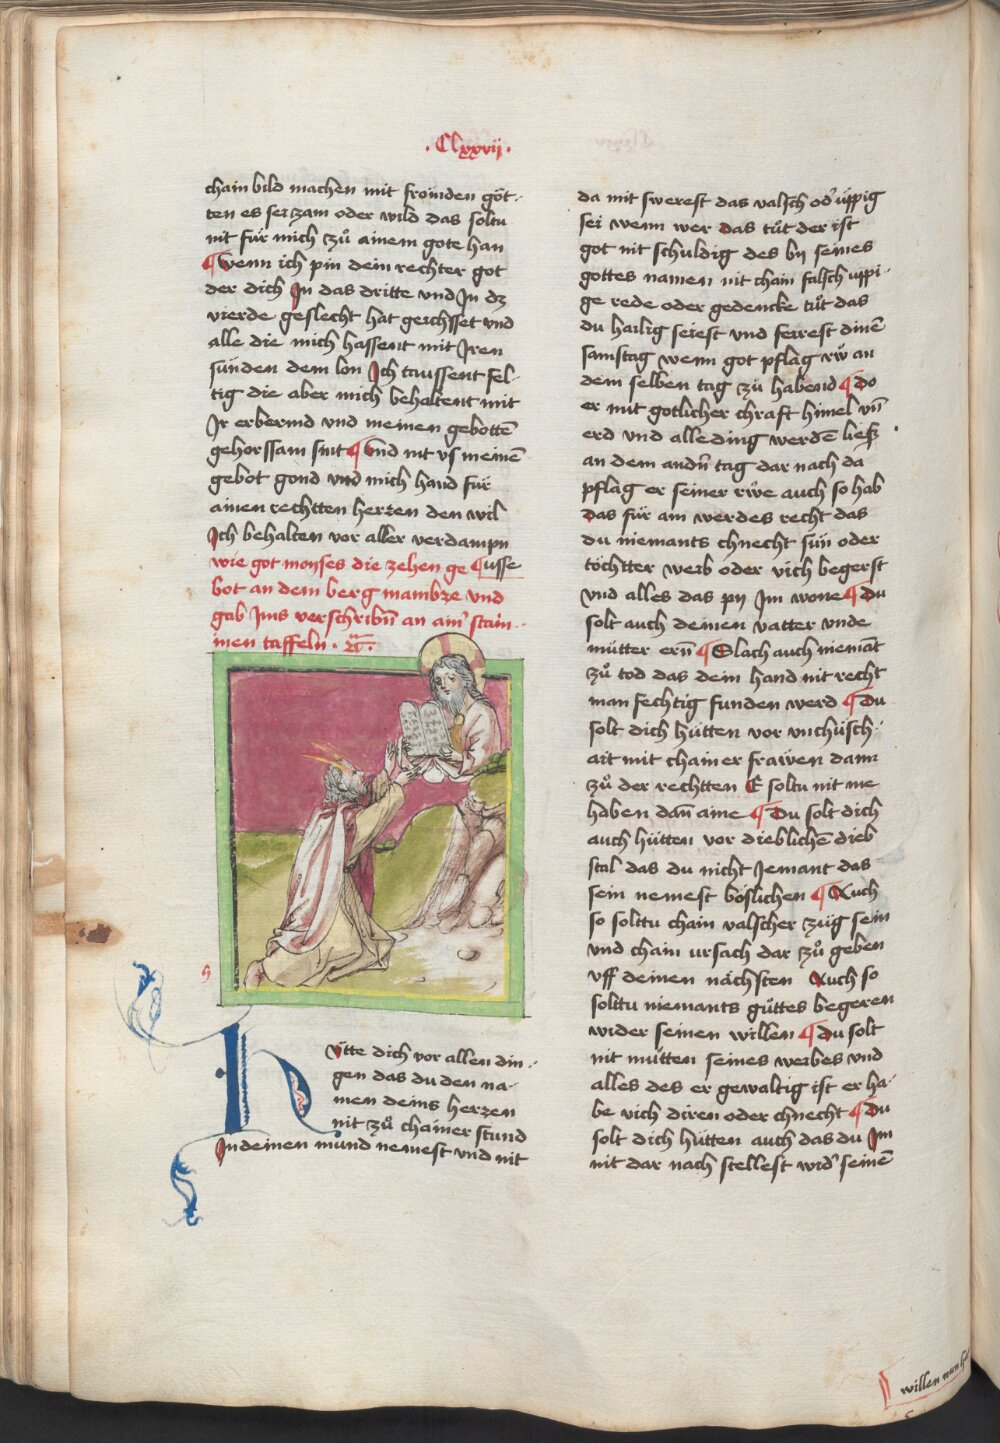 . Clxxvij .
chain bild machen mit froͤmden göt-
ten es sei zam oder wild das soltu
nit für mich zuͦ ainem gote han
¶ wenn ich pin dein rechter got
der dich Jn das dritte vnd Jn dz
vierde geslecht hat geichsset vnd
alle die mich hassent mit Jren
sünden dem lon Jch taussent fel-
tig die aber mich behaltent mit
Jr erbermd vnd meinen gebottē
gehorssam sint ¶ vnd nit vs meinē
gebot gond vnd mich hand für
ainen rechtten herren den wil
Jch behalten vor aller verdampn
wie got moyses die zehen ge ¶ usse
bot an dem berg mambre vnd
gab Jms verschribn̄ an ain' stain-
inen taffeln .
Hütte dich vor allen din-
gen das du den na-
men deins herren
nit zuͦ chainer stund
Jn deinen mund nemest vnd nit
da mit swerest das valsch od' üppig
sei wenn wer das tuͤt der ist
got nit schuldig des by seines
gottes namen nit chain falsch üppi-
ge rede oder gedencke tuͤt das
du hailig seiest vnd feirest dinē
samstag wenn got pflag rẅ an
dem selben tag zü habend ¶ Do
er mit gotlicher chraft himel vn̄
erd vnd alle ding werdē liesz
an dem andn̄ tag dar nach da
pflag er seiner rẅe auch so hab
das für ain werdes recht das
du niemants chnecht sün oder
töchtter weib oder vich begerst
vnd alles das py Jm wone ¶ Du
solt auch deinen vatter vnde
mütter ern̄ ¶ Slach auch niemāt
zuͦ tod das dein hand nit recht
man fechtig funden werd ¶ Du
solt dich hütten vor vnchüsch-
ait mit chainer frawen dann
zuͦ der rechtten E soltu nit me
haben dan̄ aine ¶ Du solt dich
auch hütten vor dieblichē dieb
stal das du nicht Jemant das
sein nemest böslichen ¶ Auch
so solttu chain valscher züg sein
vnd chain ursach dar zuͦ geben
vff deinen nächsten Auch so
solttu niemants güttes begeren
wider seinen willen ¶ Du solt
nit mütten seines weibes vnd
alles des er gewaltig ist er ha-
be vich diren oder chnecht ¶ Du
solt dich hütten auch das du Jm
nit dar nach stellest wid' seinē
willen nun